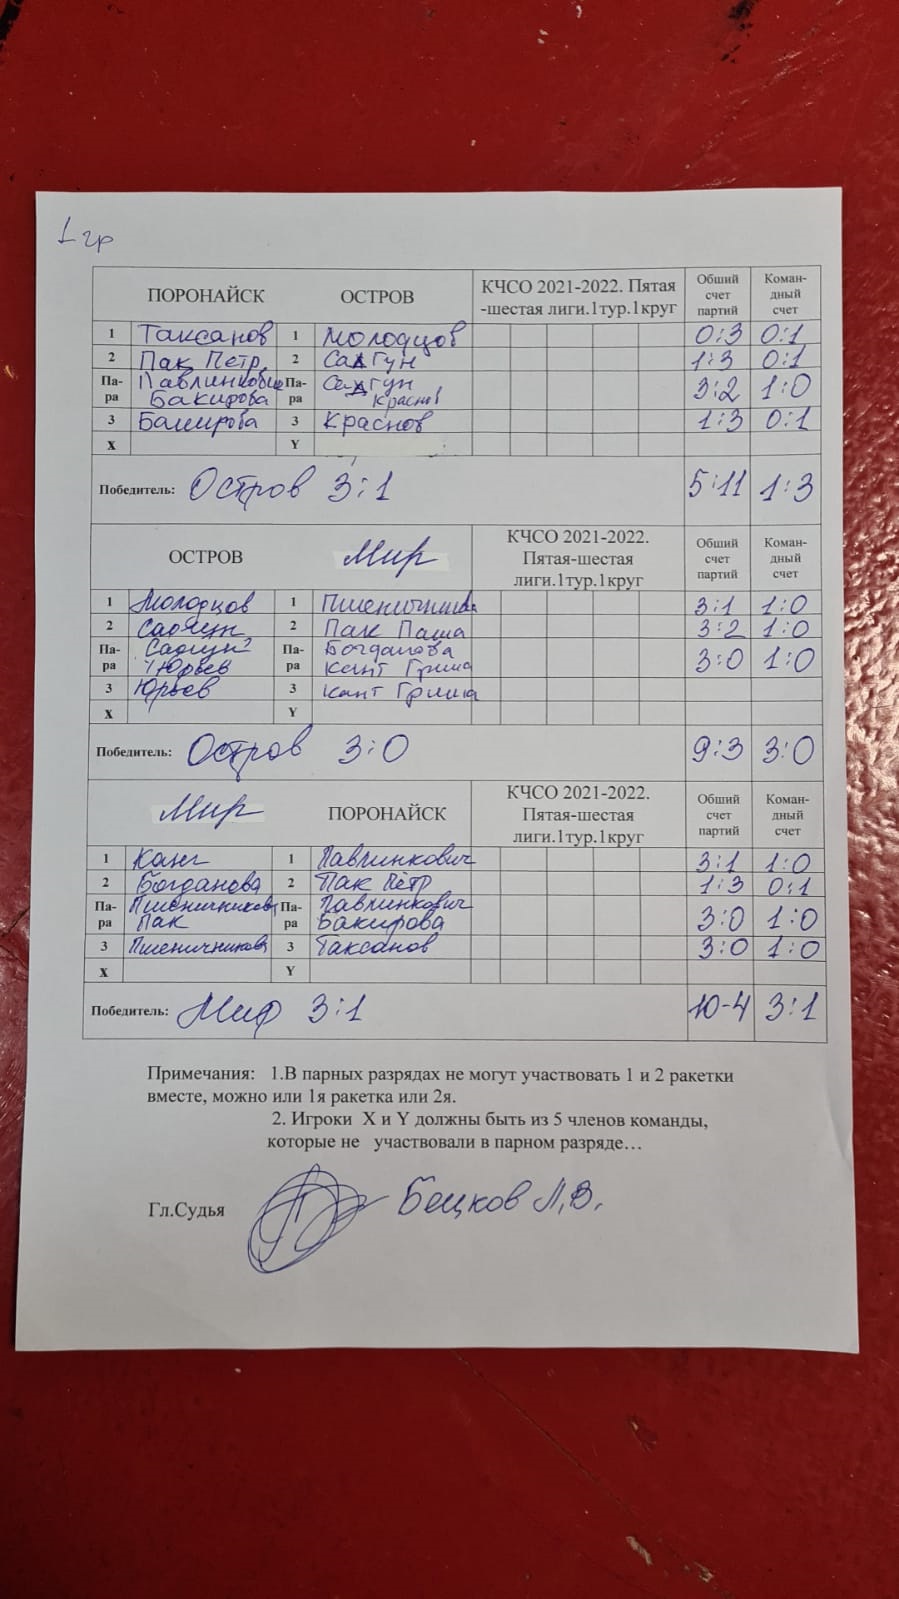 1 гр
ПОРОНАЙСК ОСТРОВ КЧСО 2021-2022. Пятая -шестая лиги.1тур.1круг Общий счет партий Коман-дный счет
1 Таксанов 1 Молодцов 0:3 0:1
2 Пак Петр 2 Садгун 1:3 0:1
Па-ра Павлинкович Бакирова Па-ра Садгун Краснов 3:2 1:0
3 Бакирова 3 Краснов 1:3 0:1
X Y
Победитель: Остров 3:1 5:11 1:3
ОСТРОВ Мир КЧСО 2021-2022. Пятая-шестая лиги.1тур.1круг Общий счет партий Коман-дный счет
1 Молодцов 1 3:1 1:0
2 2 Пак Паша 3:2 1:0
Па-ра Юрьев Па-ра Богданова Кант Гриша 3:0 1:0
3 Юрьев 3 Кант Гриша
X Y
Победитель: Остров 3:0 9:3 3:0
Мир ПОРОНАЙСК КЧСО 2021-2022. Пятая-шестая лиги.1тур.1круг Общий счет партий Коман-дный счет
1 1 Павлинкович 3:1 1:0
2 Богданова 2 Пак Пётр 1:3 0:1
Па-ра Пшеничникова Пак Па-ра Павлинкович Бакирова 3:0 1:0
3 Пшеничникова 3 Таксанов 3:0 1:0
X Y
Победитель: Мир 3:1 10-4 3:1
Примечания: 1.В парных разрядах не могут участвовать 1 и 2 ракетки
вместе, можно или 1я ракетка или 2я.
2. Игроки X и Y должны быть из 5 членов команды,
которые не участвовали в парном разряде…
Гл.Судья Бецков Л.В.